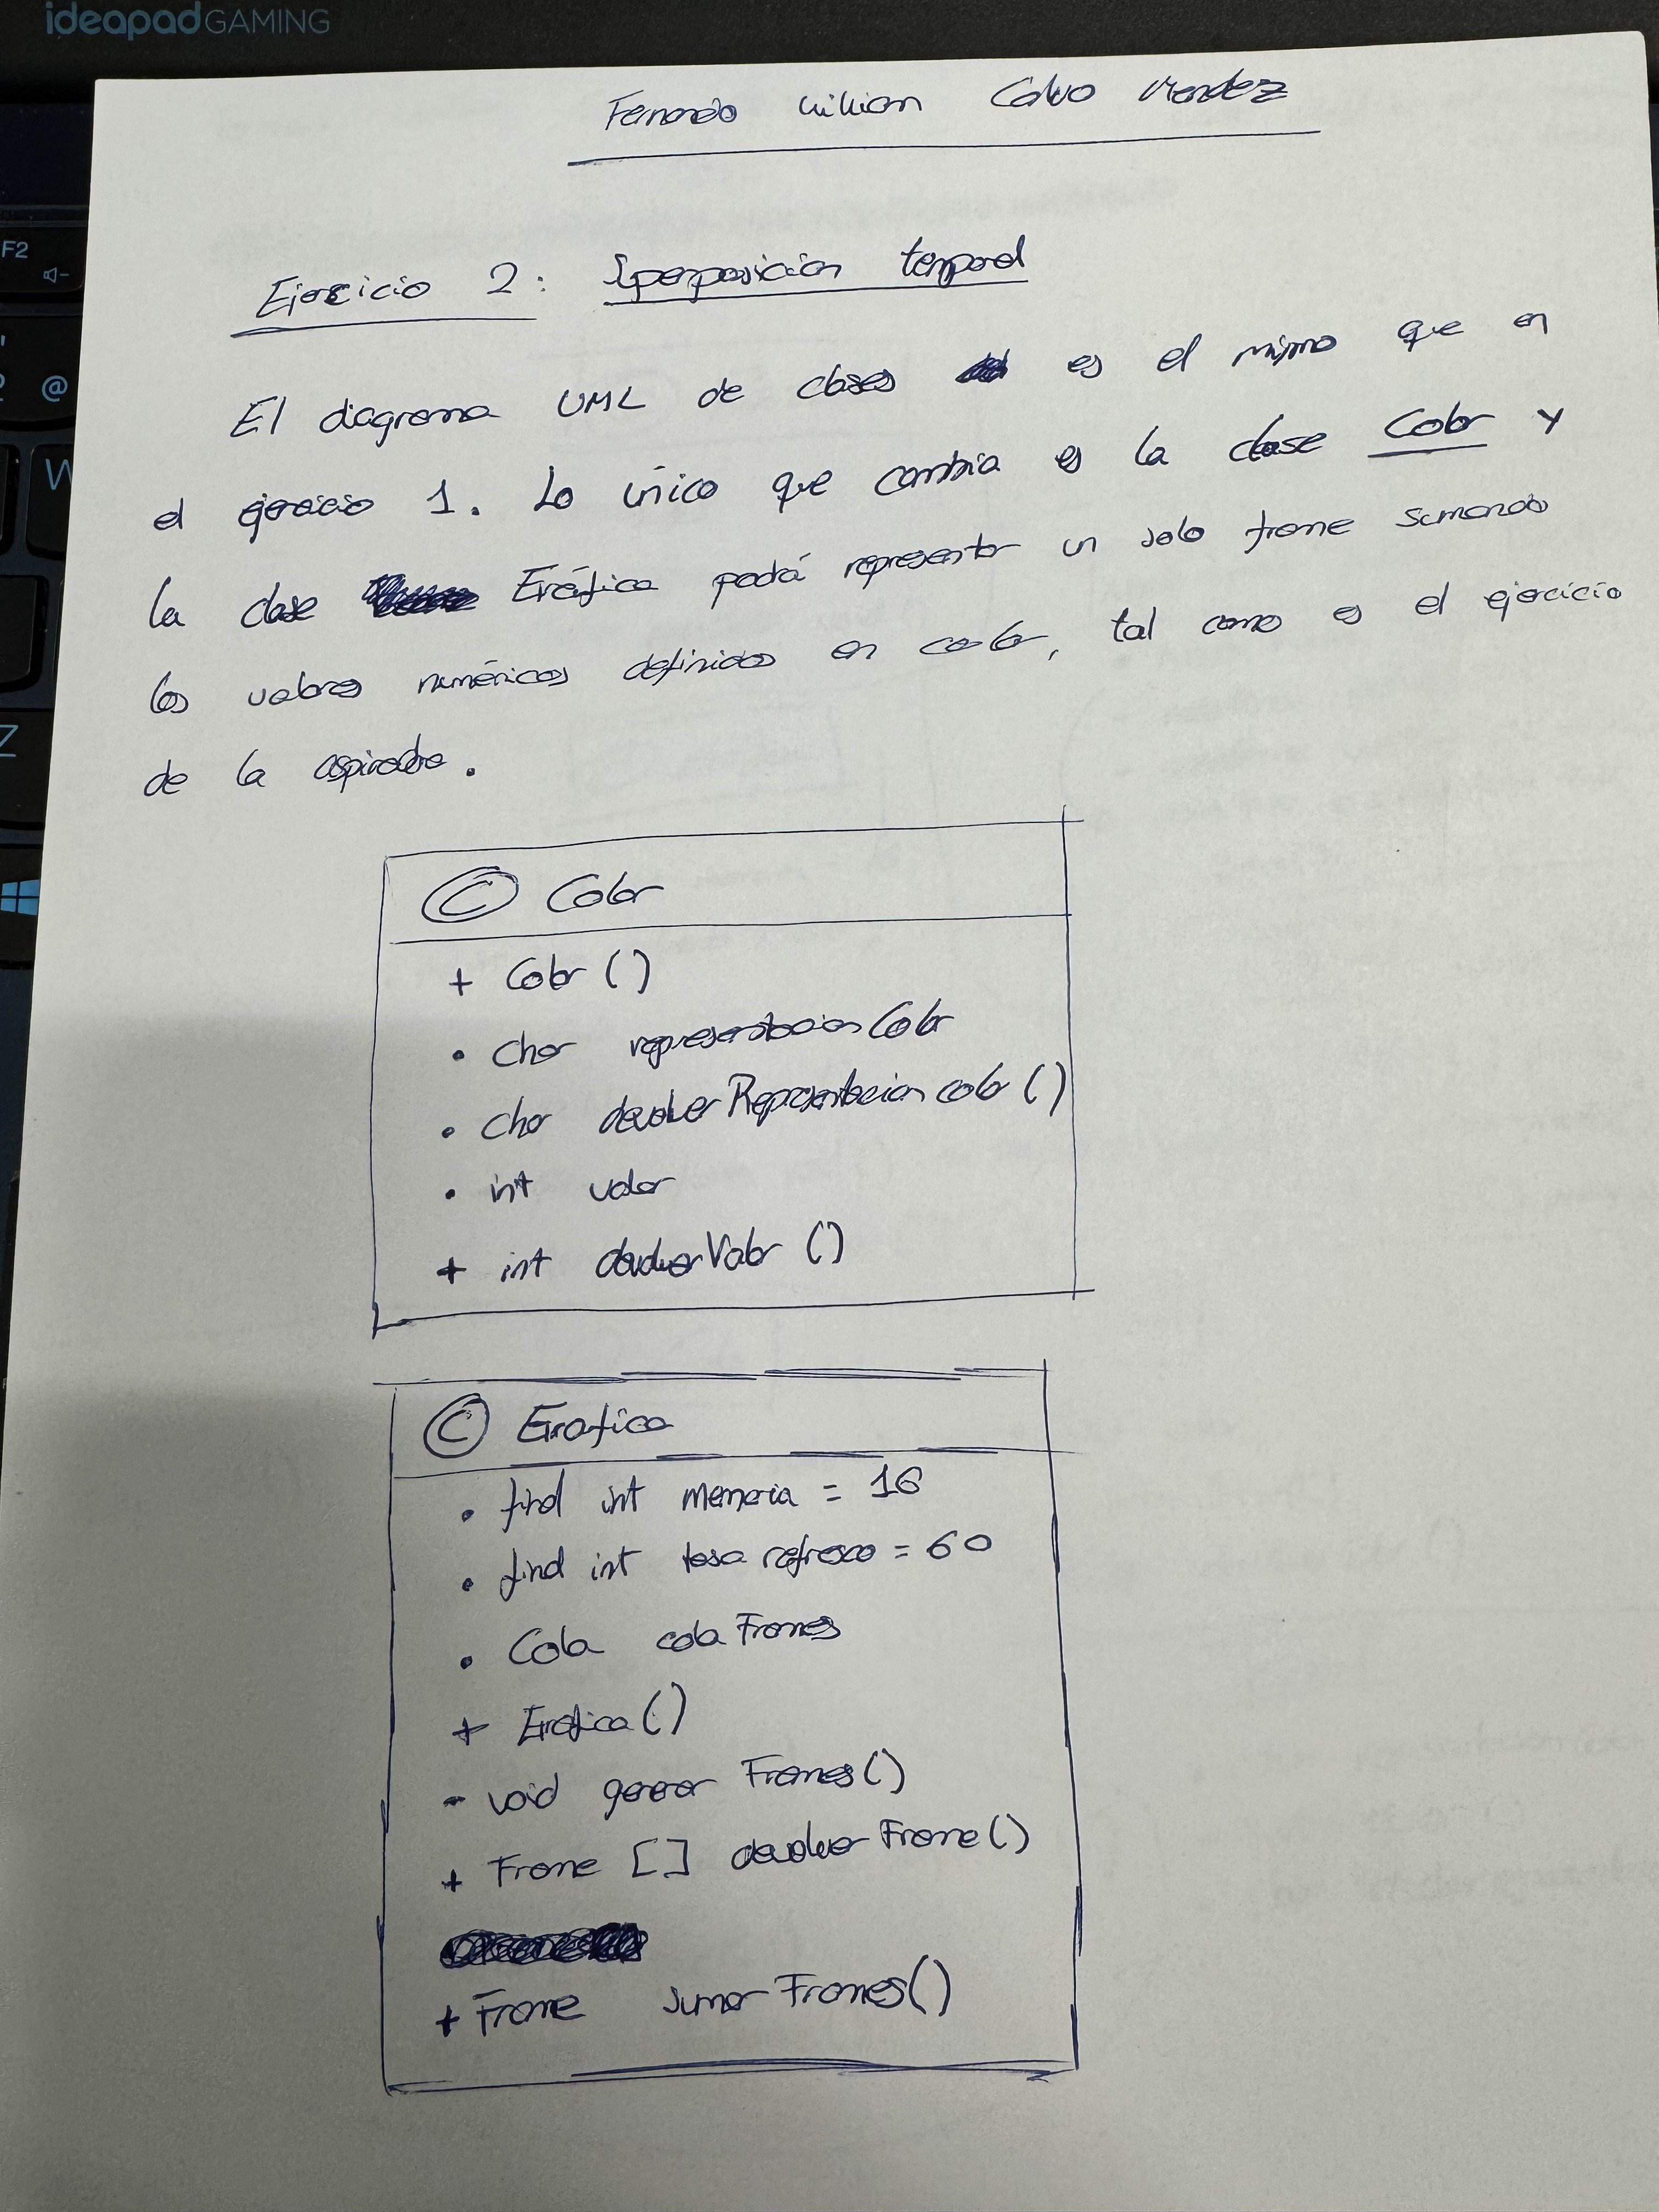 ideapad GAMING
Fernando Lilian Calvo Mendez
F2
Ejercicio 2: Superposición temporal
@
El diagrama UML de clases es el mismo que en
W
el ejercicio 1. Lo único que cambia es la clase Color y
la clase Gráfica podrá representar un solo frame sumando
los valores numéricos definidos en color, tal como es el ejercicio
Z
de la aspiradora.
C Color
+ Color ()
• Char representacionColor
• Char devolverRepresentacionColor ()
• int valor
+ int devolverValor ()
C Grafica
• final int memoria = 16
• final int tasa refresco = 60
• Cola cola Frames
+ Grafica ()
- void generar Frames ()
+ Frame [] devolver Frame ()
+ Frame sumar Frames ()